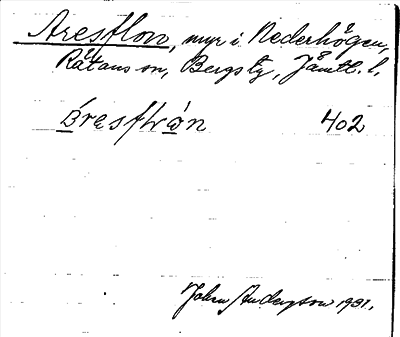 Aresflon, myr i Nederhögen,
Rätans sn, Bergs tg, Jämtl. l.
402
John Anderson 1931.